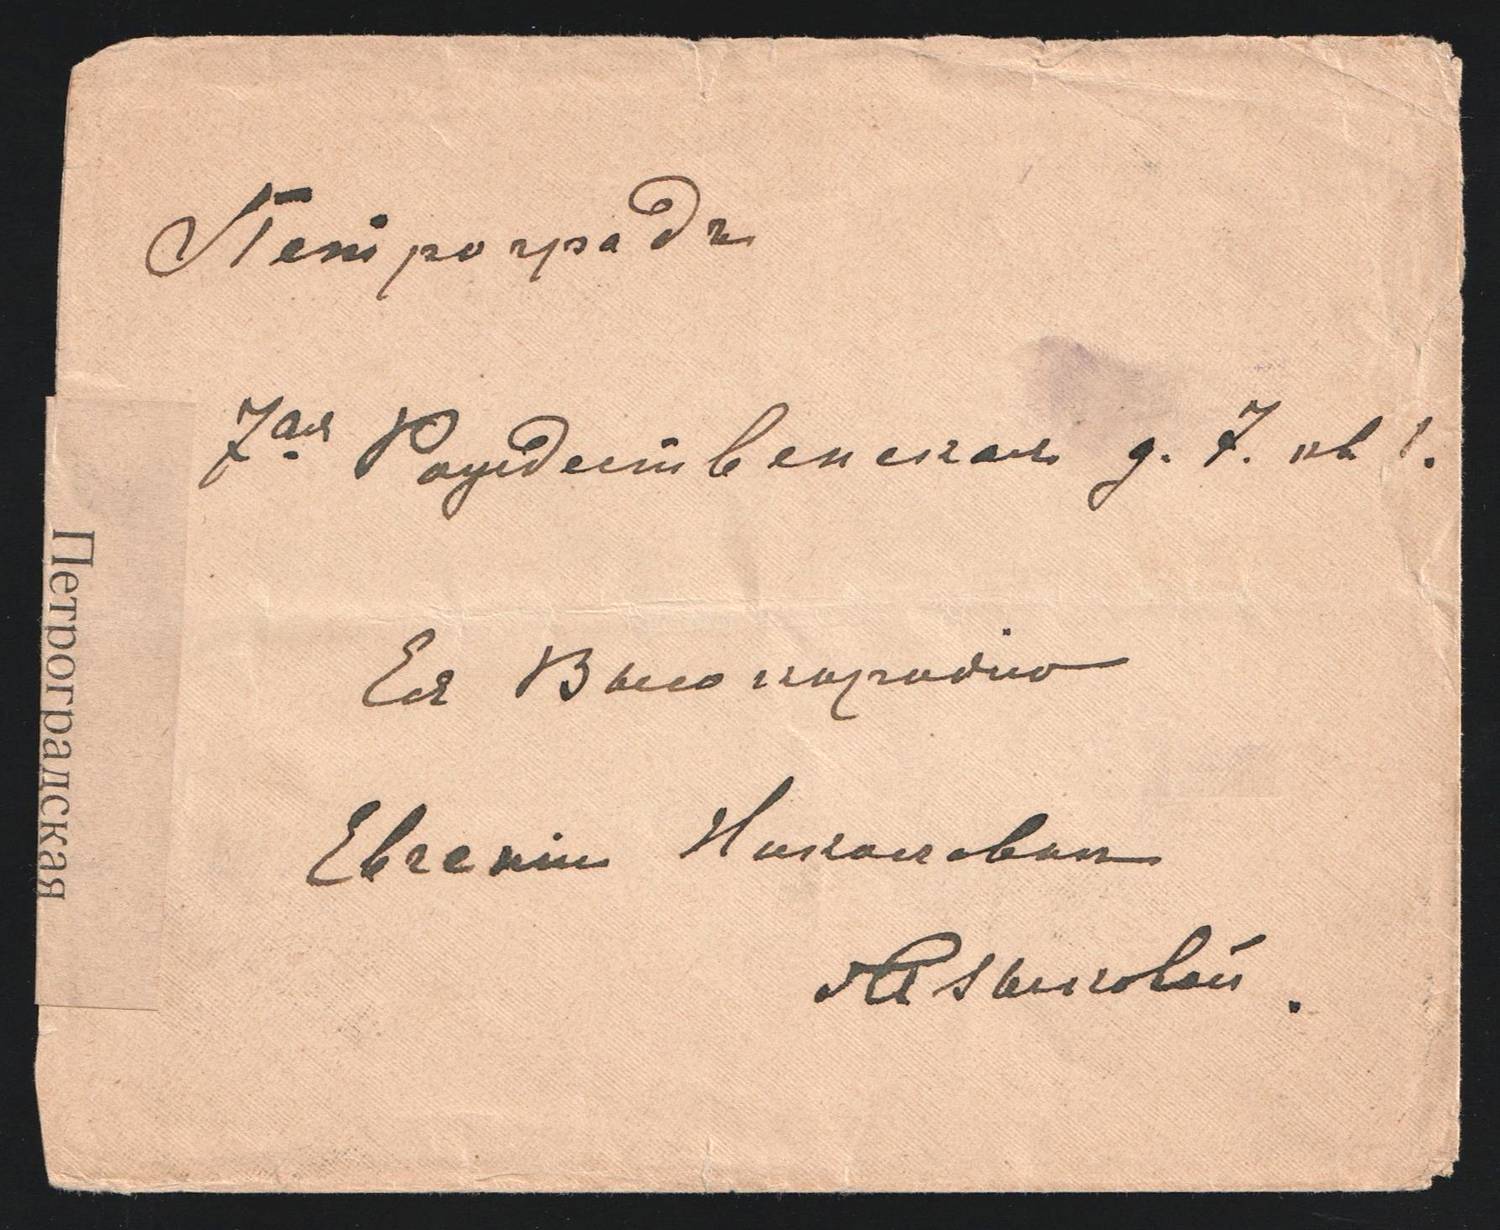 Петроградъ
7ая Рождественская д. 7. кв 1.
Ея Высокородію
Евгеніи Николаевне
Языковой.
Петроградская